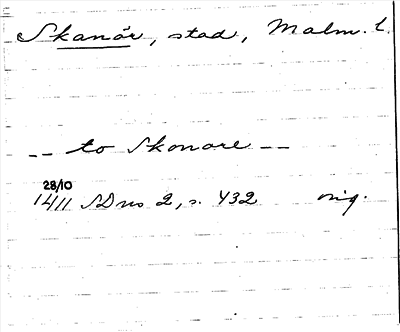 Skanör, stad, Malm. l.
-- to Skonore --
28/10
1411 SDns 2, s. 432 orig.